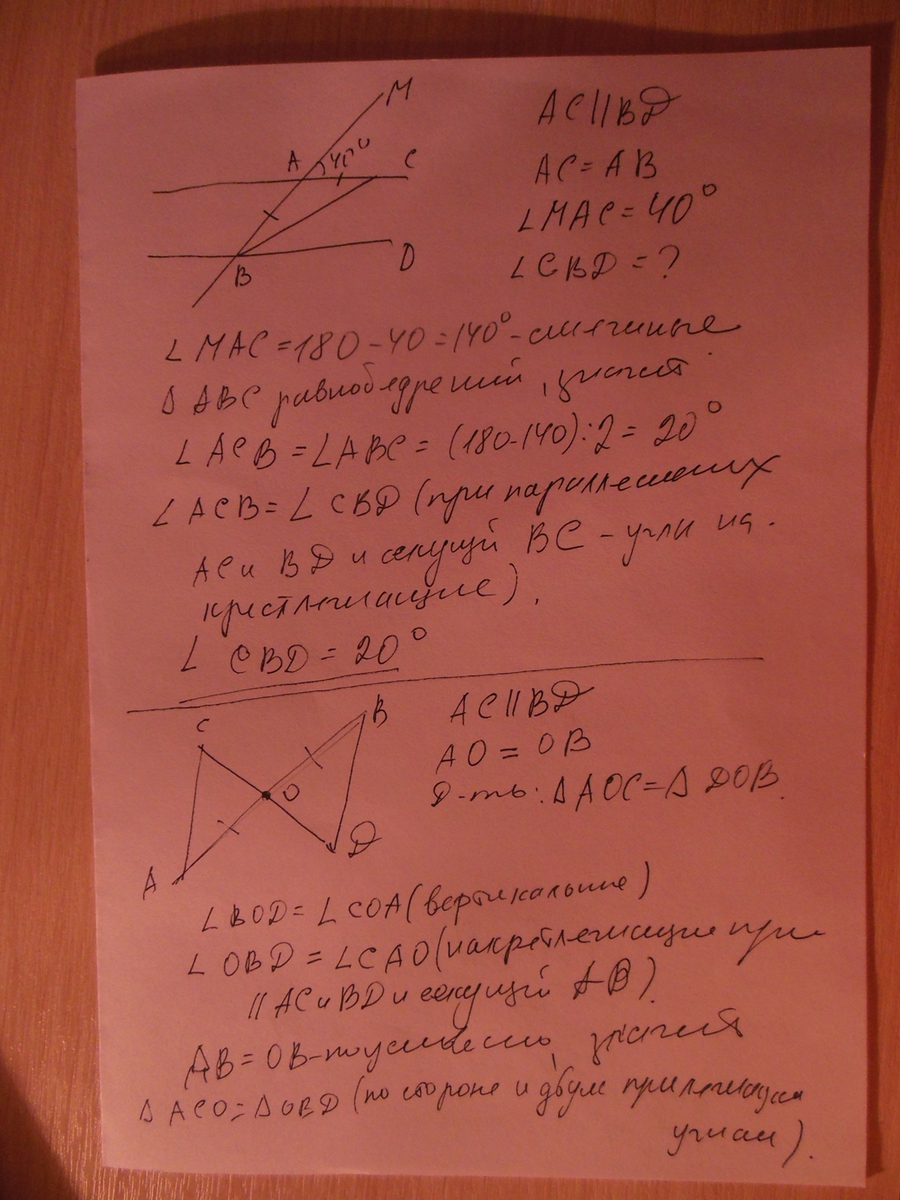 M
A 40° C
B D
AC || BD
AC = AB
∠MAC = 40°
∠CBD = ?
∠MAC = 180 - 40 = 140° - смежные
Δ ABC равнобедренный, значит
∠ACB = ∠ABC = (180-140):2 = 20°
∠ACB = ∠CBD (при параллельных
AC и BD и секущей BC - углы на-
крестлежащие).
∠ CBD = 20°
C B
O
A D
AC || BD
AO = OB
Д-ть: Δ AOC = Δ DOB.
∠BOD = ∠COA (вертикальные)
∠OBD = ∠CAO (накрестлежащие при
|| AC и BD и секущей AB)
AB = OB - по условию, значит
Δ ACO = Δ OBD (по стороне и двум прилежащим
углам).